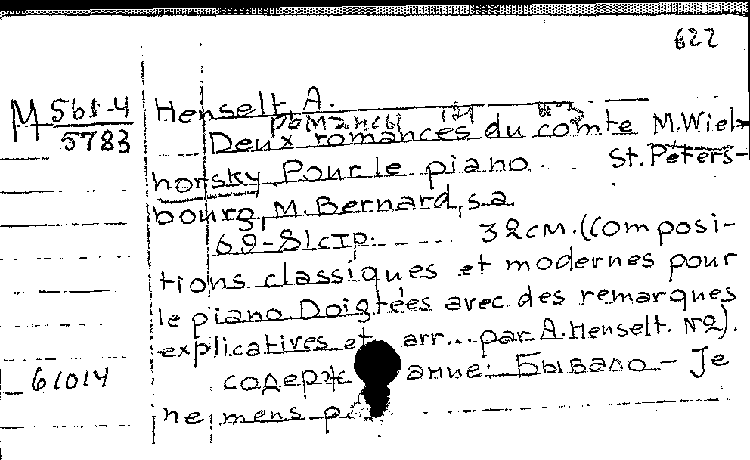 622
M 561-4
5783
Henselt, A.
Deux romances du comte M. Wiel-
horsky Pour le piano. St. Peters-
bourg, M. Bernard, s.a.
69-81 стр. 32 см. (Composi-
tions classiques et modernes pour
le piano. Doigtées avec des remarques
explicatives et arr... par A. Henselt. №2).
61014
содерж ание: Бывало - Je
ne mens p